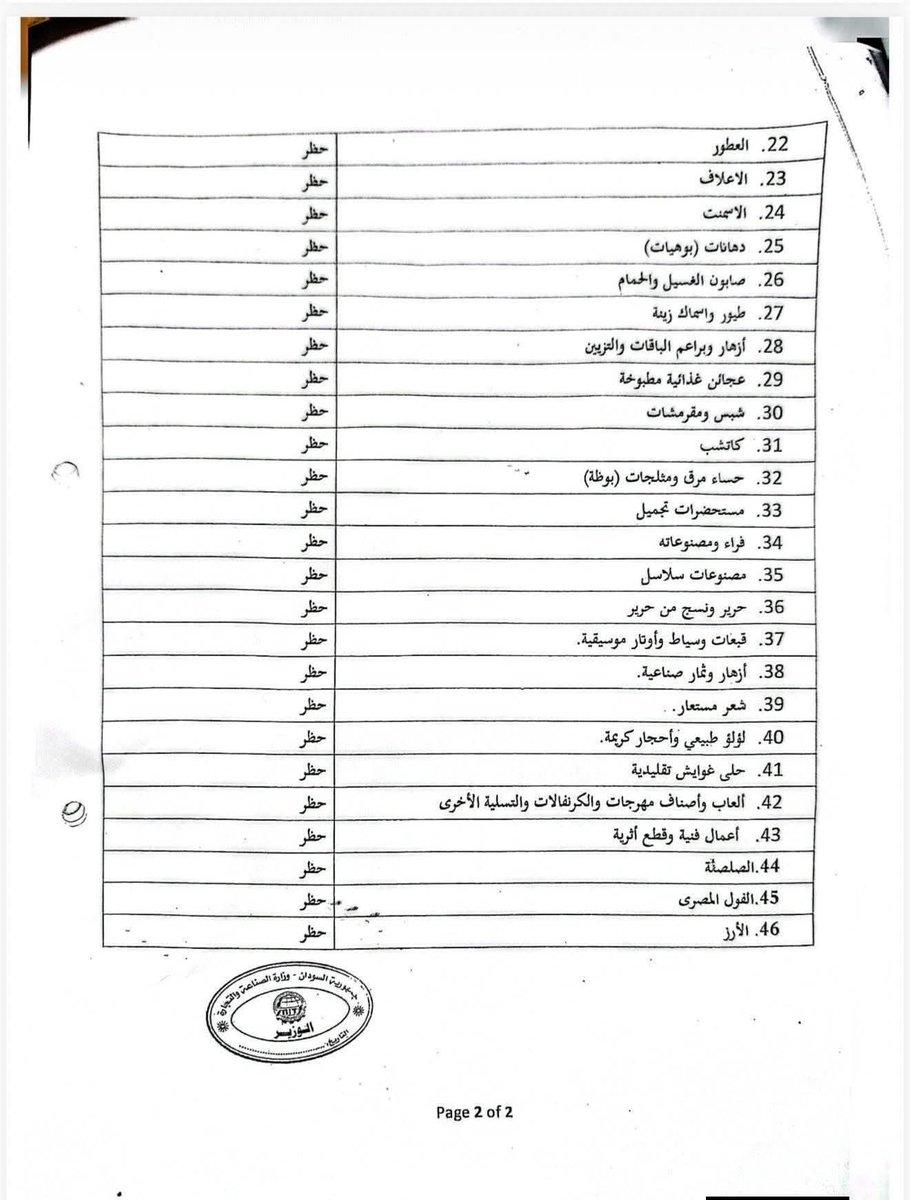 22. العطور حظر
23. الاعلاف حظر
24. الاسمنت حظر
25. دهانات (بوهيات) حظر
26. صابون الغسيل والحمام حظر
27. طيور واسماك زينة حظر
28. أزهار وبراعم الباقات والتزيين حظر
29. عجائن غذائية مطبوخة حظر
30. شبس ومقرمشات حظر
31. كاتشب حظر
32. حساء مرق ومثلجات (بوظة) حظر
33. مستحضرات تجميل حظر
34. فراء ومصنوعاته حظر
35. مصنوعات سلاسل حظر
36. حرير ونسج من حرير حظر
37. قبعات وسياط وأوتار موسيقية. حظر
38. أزهار وثمار صناعية. حظر
39. شعر مستعار. حظر
40. لؤلؤ طبيعي وأحجار كريمة. حظر
41. حلى غوايش تقليدية حظر
42. ألعاب وأصناف مهرجات والكرنفالات والتسلية الأخرى حظر
43. أعمال فنية وقطع أثرية حظر
44. الصلصلة حظر
45. الفول المصرى حظر
46. الأرز حظر
جمهورية السودان - وزارة الصناعة والتجارة
الوزير
التاريخ:
Page 2 of 2